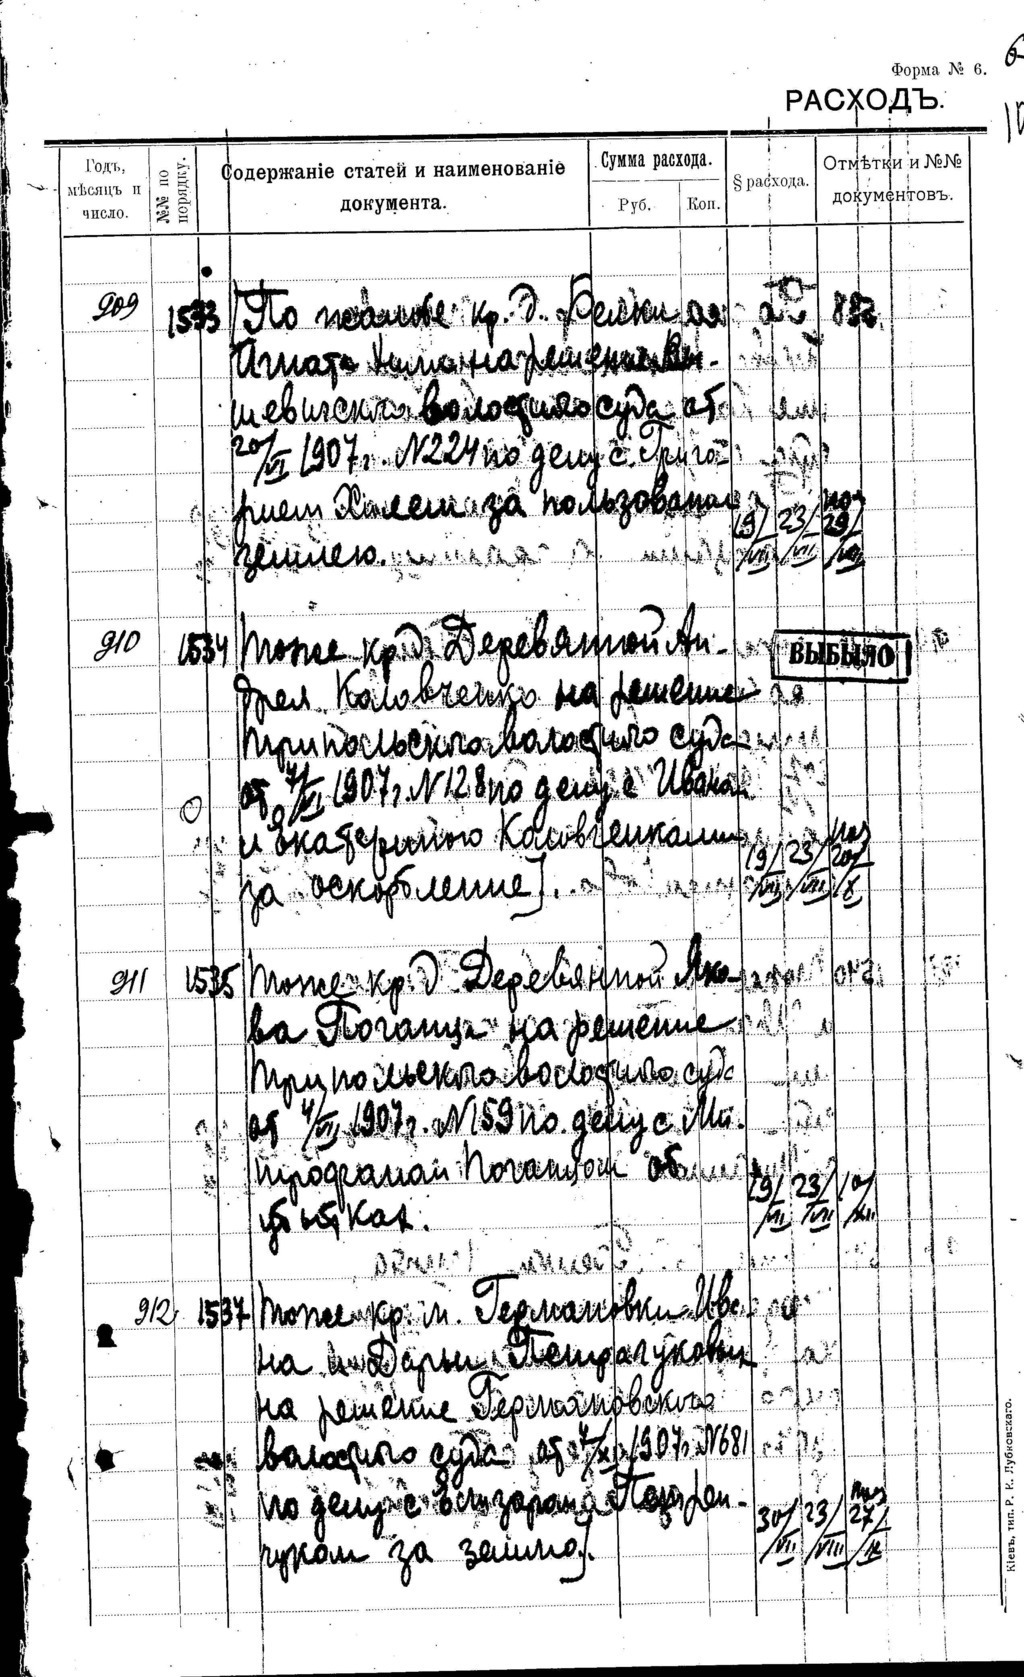 Форма № 6.
РАСХОДЪ.
Годъ, мѣсяцъ и число.
№№ по порядку.
Содержаніе статей и наименованіе документа.
Сумма расхода.
Руб.
Коп.
§ расхода.
Отмѣтки и №№ документовъ.
909 1533 По жалобе кр. д.
Игната на решение
волостного суда от
20/VI 1907 г. N224 по делу с Григо-
рием за пользование
землею.
19/VII 23/VII 29/
910 1534 Тоже кр. д. Деревянной Ан-
дрея на решение
ВЫБЫЛО
Трипольского волостного суда
от 7/VI 1907 г. N128 по делу с Иваном
и Екатериною
за оскорбление].
19/VII 23/VII 20/X
911 1535 Тоже кр. д. Деревянной Яко-
ва Поганца на решение
Трипольского волостного суда
от 4/VII 1907 г. N159 по делу с Ми-
трофаном Поганцом об
убытках.
19/VII 23/VII 10/XII
912 1537 Тоже кр. м. Германовки Ива-
на и Дарьи
на решение Германовского
волостного суда от 1907 г. N681
по делу с
за землю].
30/VII 23/VIII 27/IX
Кіевъ, тип. Р. К. Лубковскаго.